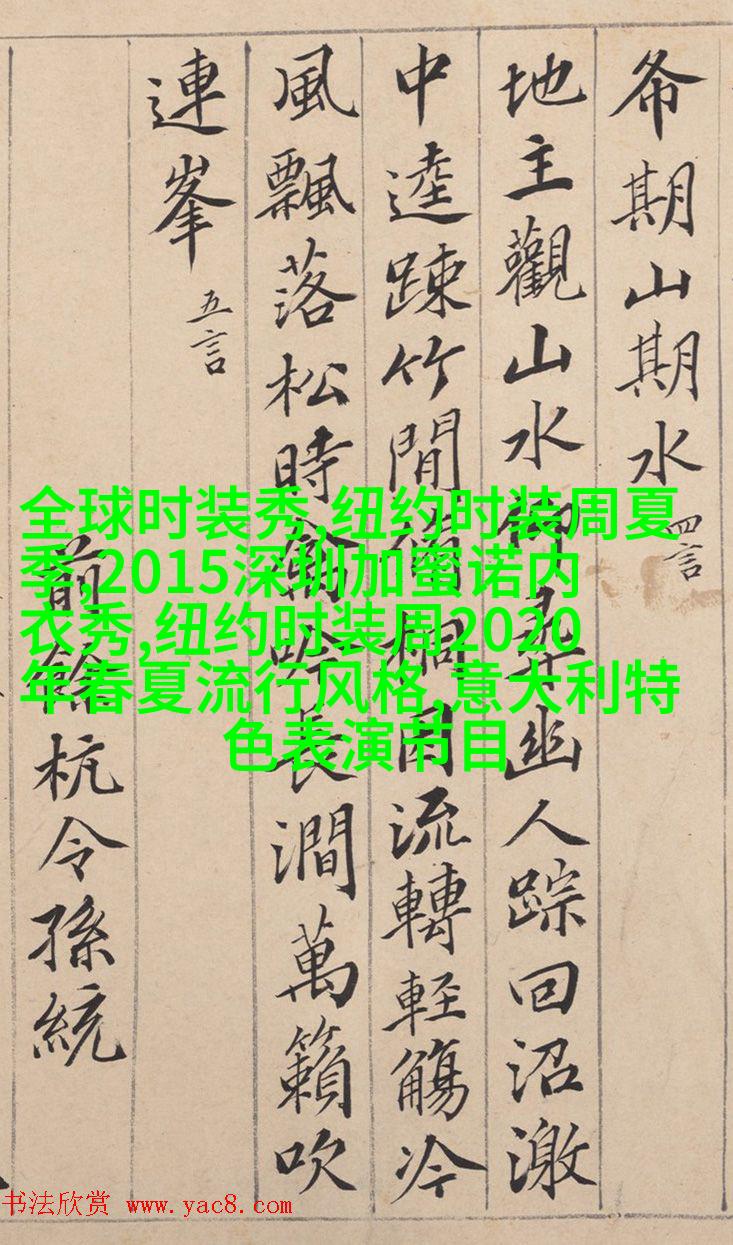 希期山期水 四言
地主觀山水仰尋幽人踪回沼激
中逵踈竹間脩桐因流轉輕觴冷
風飄落松時禽吟長澗萬籟吹
連峯 五言
前餘杭令孫統
全球时装秀,纽约时装周夏
季,2015深圳加蜜诺内
衣秀,纽约时装周2020
年春夏流行风格,意大利特
色表演节目
书法欣赏 www.yac8.com